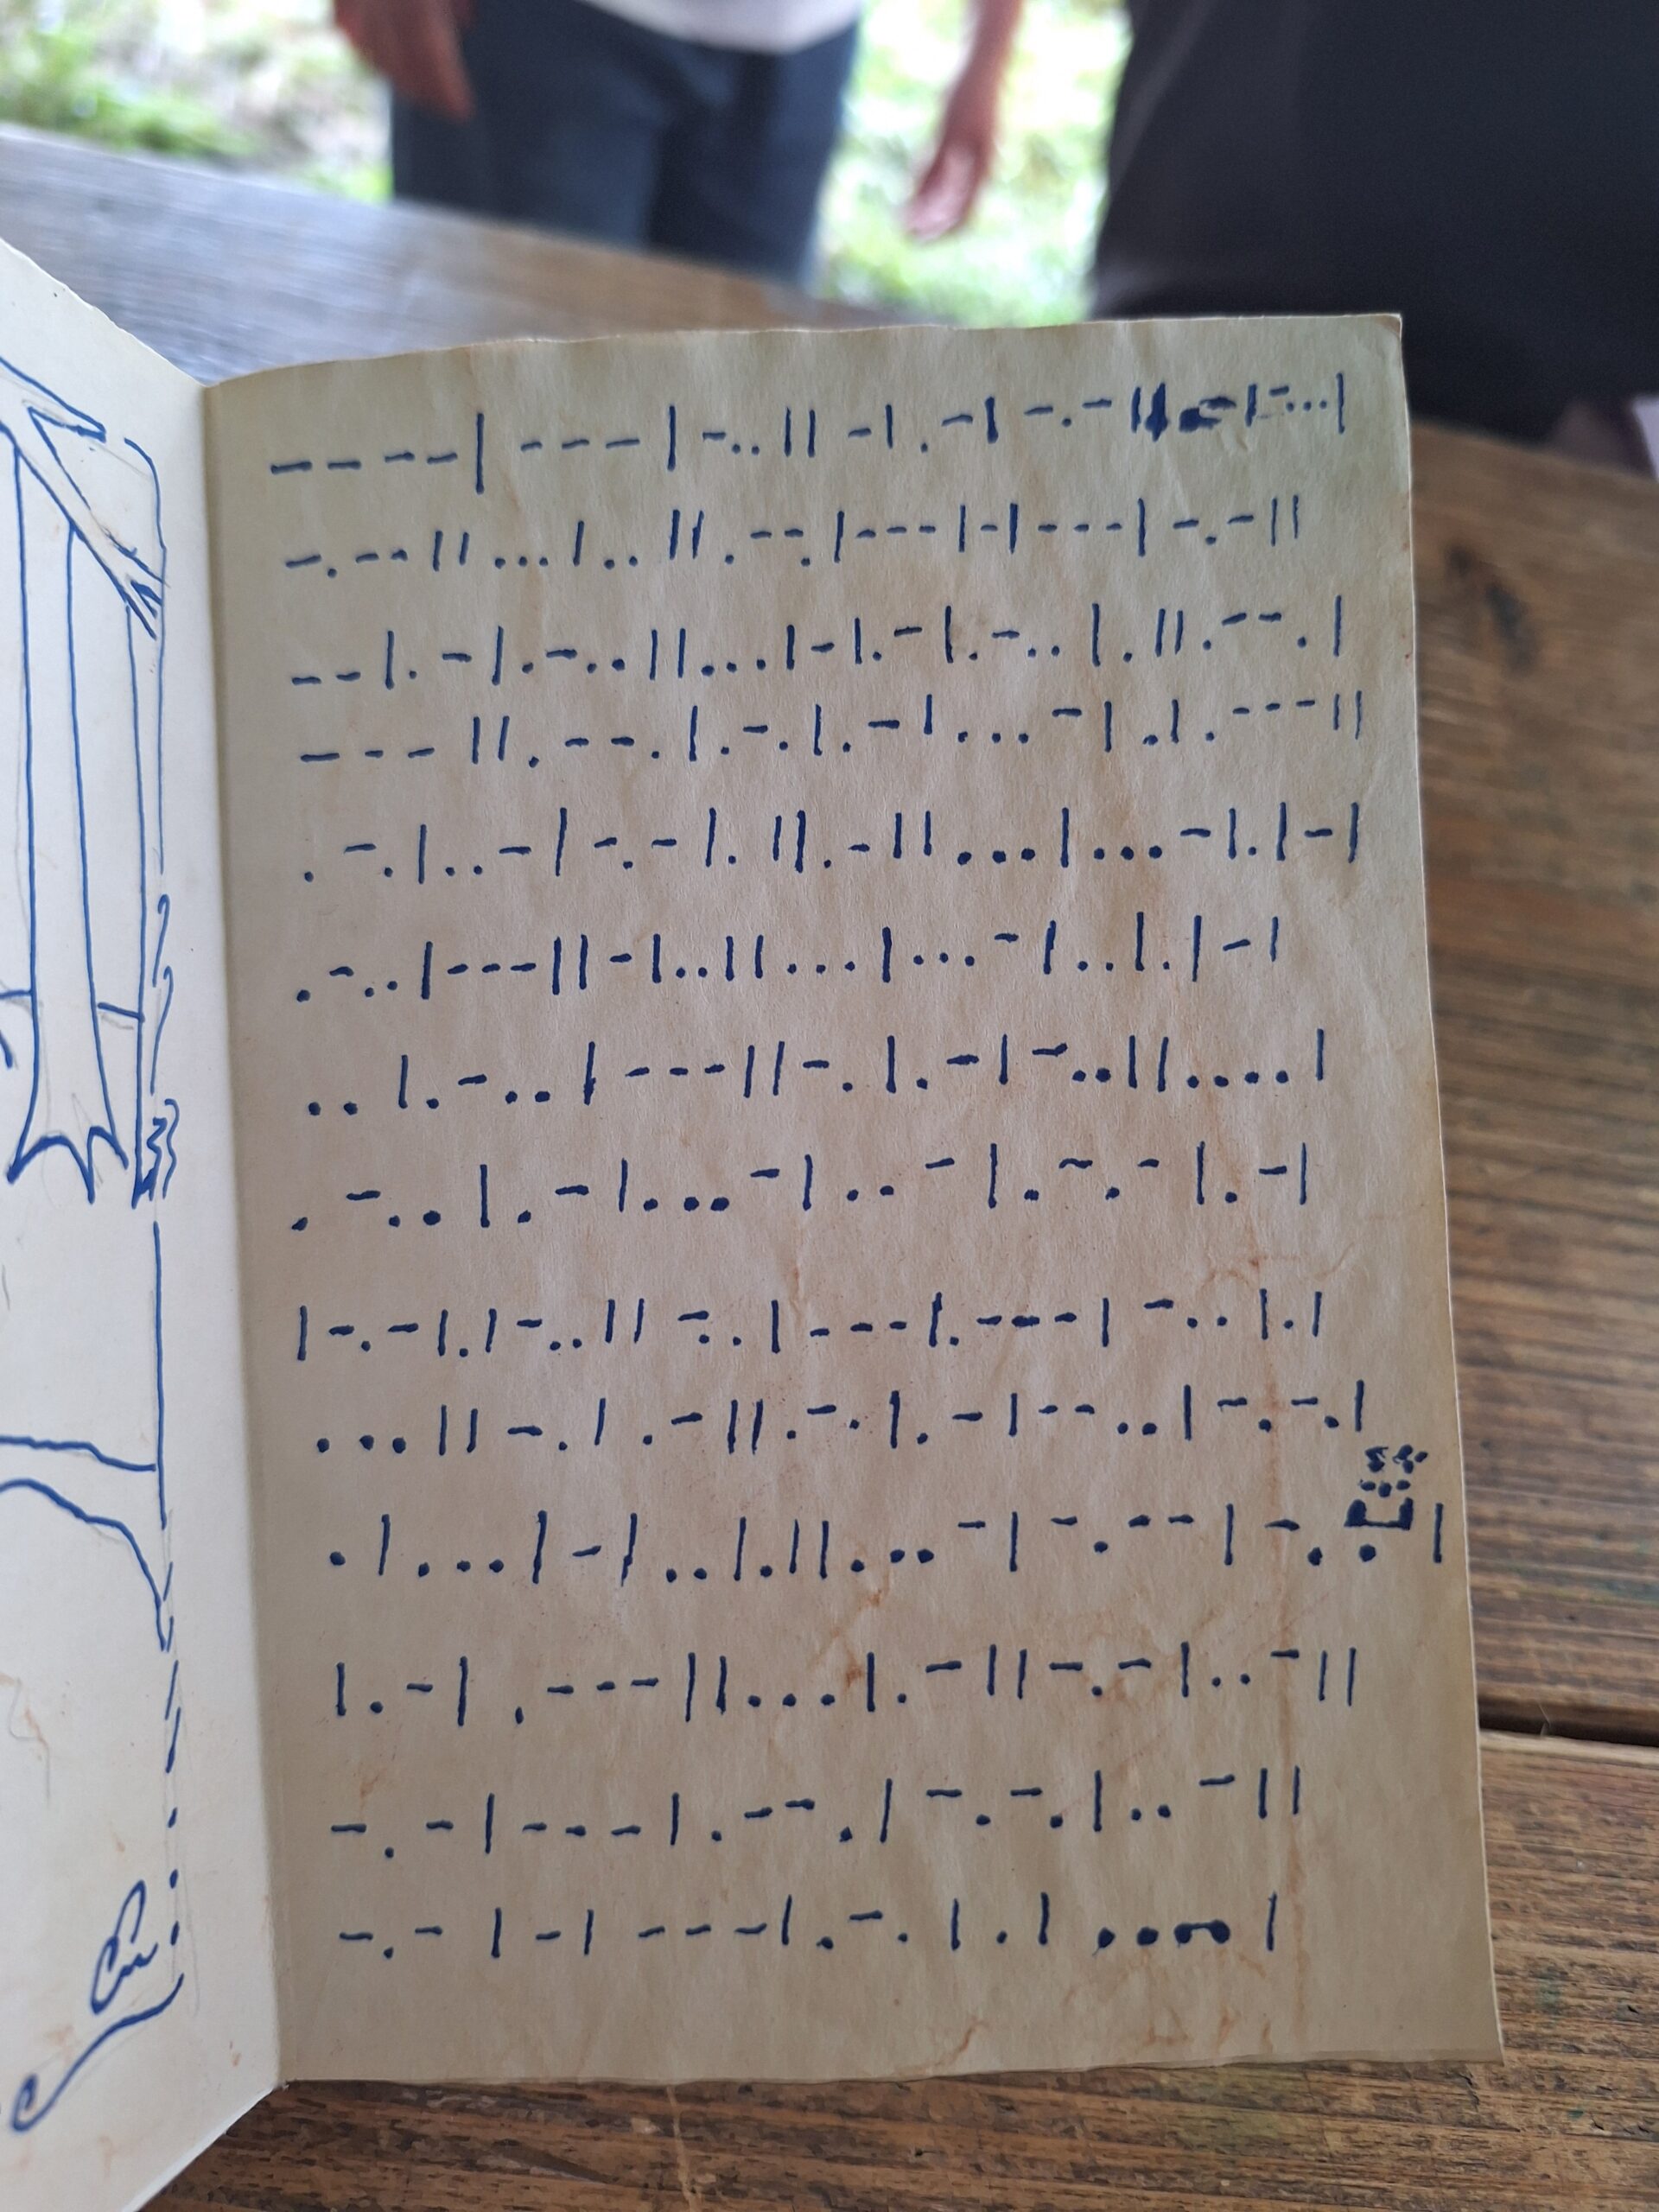 ----|---|-..||-|.-|-.-||.-|-...|
-.--||...|..||.--.|---|-|---|-.-||
--|.-|.-..||...|-|.-|.-..|.||.--.|
---||.--.|.-.|.-|...-|.|.---||
.-.|..-|-.-|.||.-||...|...-|.|-|
.-..|---||-|..||...|...-|..|.|-|
..|.-..|---||-.|.-|-..||....|
.-..|.-|...-|..-|.-.-|.-|
|-.-|.|.|-..||-..|---|.---|-..|.|
...||-.|.-||.-.|.-|--..|-.-.|
.|...|-|..|.||...-|-.--|-..|
|.-|.---||...|.-||-.-|..-||
-.-|---|.--.|-.-.|..-||
-.-|-|---|.-.|.|....|